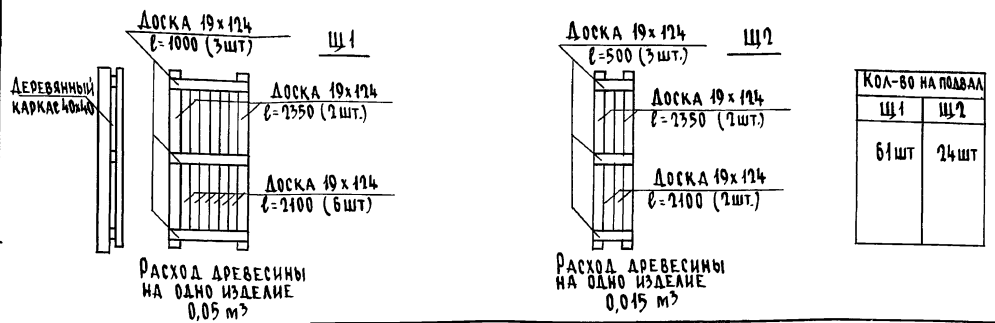 Доска 19х124
ℓ=1000 (3шт)
Щ1
Деревянный
каркас 40х40
Доска 19х124
ℓ=2350 (2шт.)
Доска 19х124
ℓ=2100 (6шт)
Расход древесины
на одно изделие
0,05 м³
Доска 19х124
ℓ=500 (3шт.)
Щ2
Доска 19х124
ℓ=2350 (2шт.)
Доска 19х124
ℓ=2100 (2шт.)
Расход древесины
на одно изделие
0,015 м³
Кол-во на подвал
Щ1 Щ2
61шт 24шт